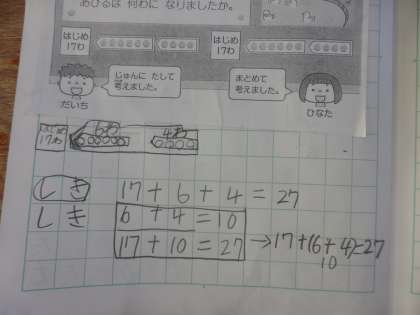 あひるは 何わに なりましたか。
はじめ
17わ
はじめ
17わ
じゅんに たして
考えました。
まとめて
考えました。
だいち
ひなた
はじめ
17わ
6わ
4わ
しき 17+6+4=27
しき 6+4=10
17+10=27 →17+(6+4)=27
10